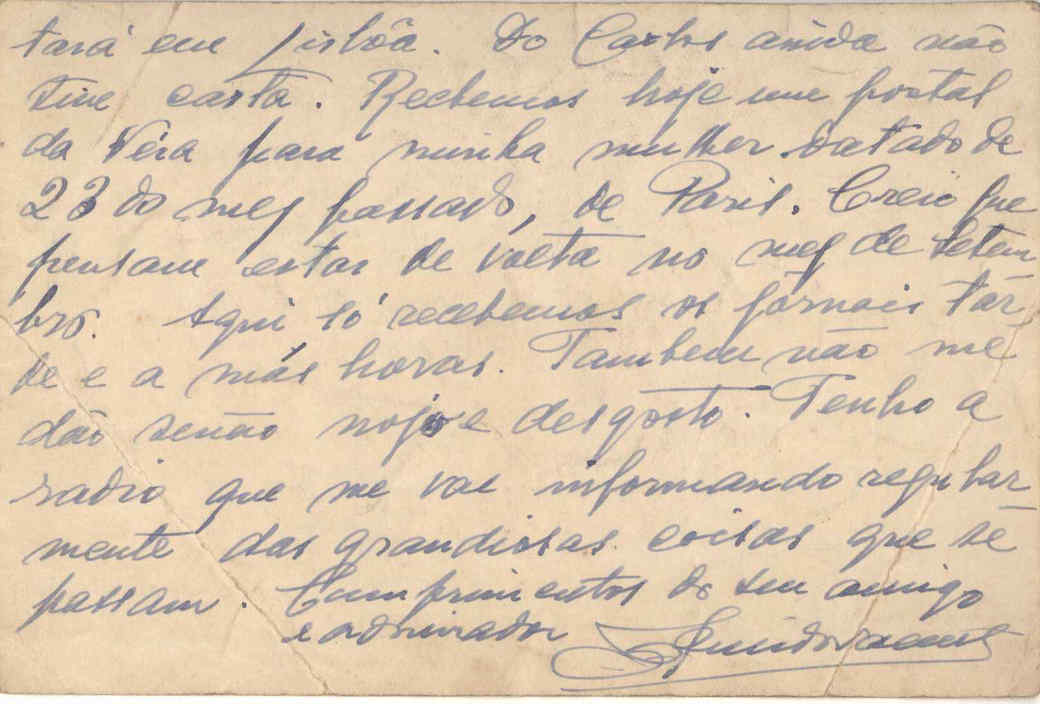 tará em Lisbôa. Do Carlos ainda não
tive carta. Recebemos hoje um postal
da Véra para minha mulher datado de
23 do mez passado, de Paris. Creio que
pensam estar de volta no mez de Setem
bro. Aqui só recebemos os jornais tar
de e a más horas. Tambem não me
dão senão nojo e desgosto. Tenho a
radio que me vae informando regular
mente das grandiosas coisas que se
passam. Cumprimentos do seu amigo
e admirador